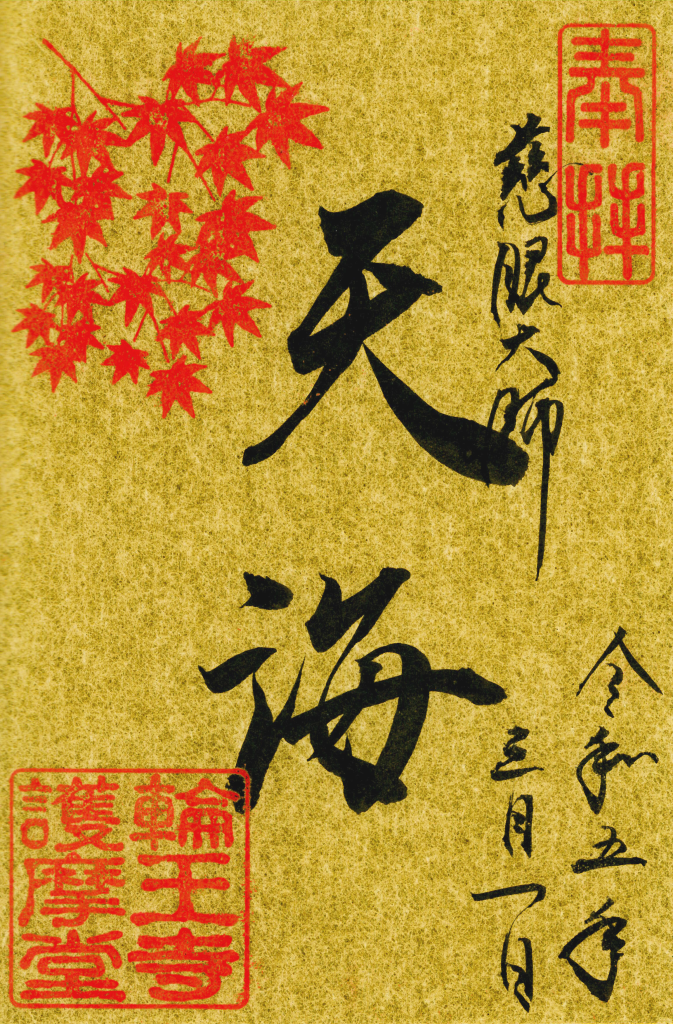 奉拝
慈眼大師
天海
令和五年
三月一日
輪王寺
護摩堂